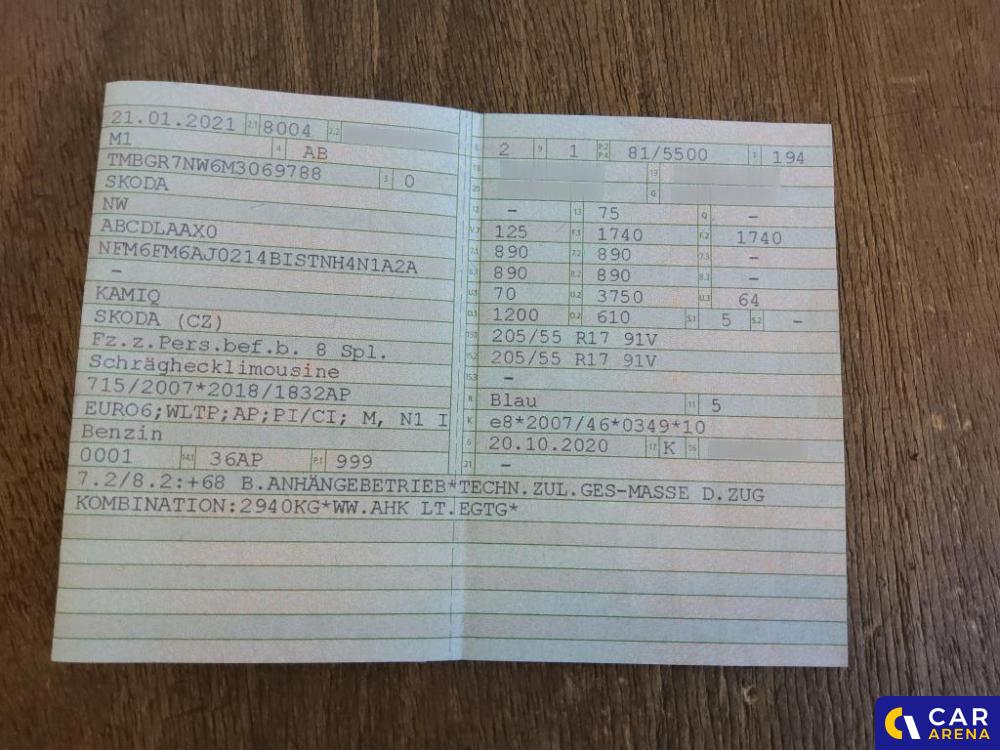 21.01.2021 2.1 8004 2.2
M1 4 AB
TMBGR7NW6M3069788 3 0
SKODA
NW
ABCDLAAX0
NFM6FM6AJ0214BISTNH4N1A2A
–
KAMIQ
SKODA (CZ)
Fz.z.Pers.bef.b. 8 Spl.
Schräghecklimousine
715/2007*2018/1832AP
EURO6;WLTP;AP;PI/CI; M, N1 I
Benzin
0001 14.1 36AP P.1 999
2 9 1 P.2 P.4 81/5500 T 194
18 19
20 G
12 – 13 75 Q –
V.7 125 F.1 1740 F.2 1740
7.1 890 7.2 890 7.3 –
8.1 890 8.2 890 8.3 –
U.1 70 U.2 3750 U.3 64
O.1 1200 O.2 610 S.1 5 S.2 –
15.1 205/55 R17 91V
15.2 205/55 R17 91V
15.3 –
R Blau 11 5
K e8*2007/46*0349*10
6 20.10.2020 17 K 16
21 –
7.2/8.2:+68 B.ANHÄNGEBETRIEB*TECHN.ZUL.GES-MASSE D.ZUG
KOMBINATION:2940KG*WW.AHK LT.EGTG*
CAR
ARENA